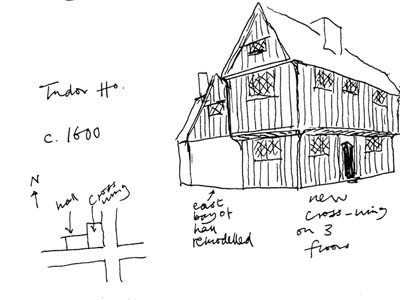 Tudor Ho.
c. 1600
N
hall
cross
wing
east
bay of
hall
remodelled
new
cross-wing
on 3
floors